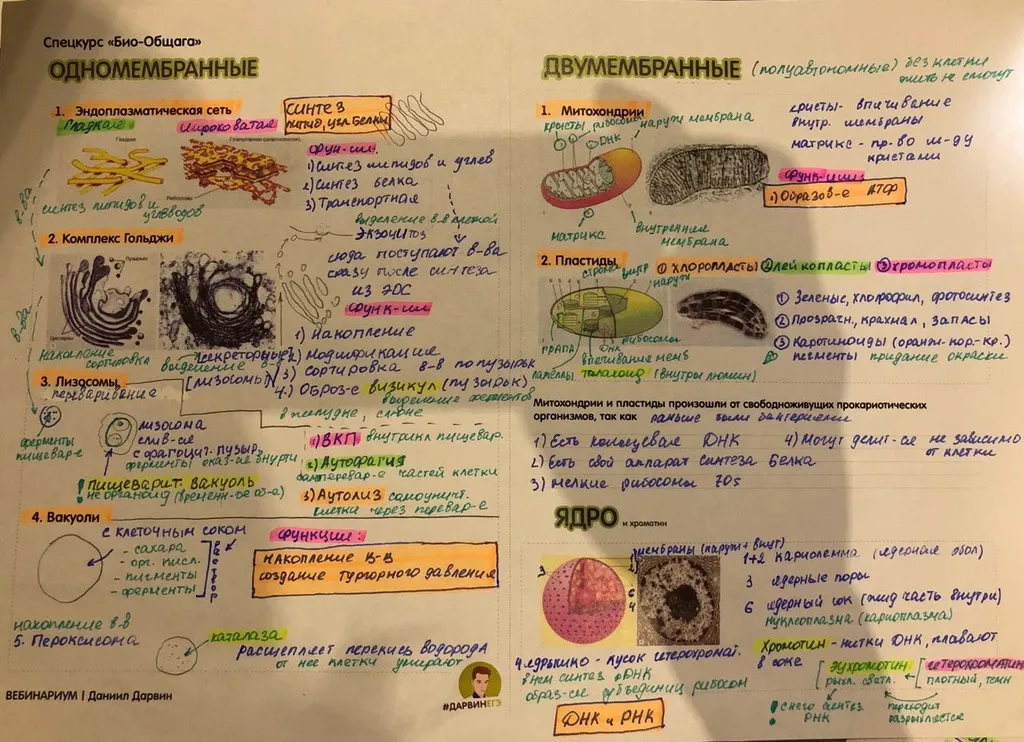 Спецкурс «Био-Общага»
ОДНОМЕМБРАННЫЕ
1. Эндоплазматическая сеть
Гладкая
Шероховатая
СИНТЕЗ
липид, угл, белки
Гладкая
Гранулярная (шероховатая)
Рибосомы
синтез липидов и
углеводов
Функ-ии:
1) Синтез липидов и углев
2) Синтез белка
3) Транспортная
в-ва
2. Комплекс Гольджи
Пузырьки
Цистерны
выделение в-в клеткой
ЭКЗОЦИТОЗ
сюда поступают в-ва
сразу после синтеза
из ЭПС
Функ-ии
1) Накопление
2) Модификация
3) Сортировка в-в по пузырьк
4) Оброз-е визикул (пузырьк)
в-ва
накопление
сортировка
выделение в-в
[секреторные]
[лизосомы]
выделение ферментов
в желудке, слюне
3. Лизосомы,
переваривание
ферменты
пищевар-е
лизосома
слив-ся
с фагоцит. пузыр.
ферменты оказ-ся внутри
! Пищеварит. вакуоль
не органоид (временн-ое об-е)
1) ВКП внутрикл пищевар.
2) Аутофагия
перевар-е частей клетки
3) Аутолиз самоуничт.
клетки через перевар-е
4. Вакуоли
с клеточным соком
- сахара
- орг. кисл.
- пигменты
- ферменты
раствор
Функции:
накопление в-в
создание тургорного давления
накопление в-в
5. Пероксисома
каталаза
Расщепляет перекись водорода
от нее клетки умирают
ВЕБИНАРИУМ | Даниил Дарвин
#ДАРВИНЕГЭ
ДВУМЕМБРАННЫЕ
(полуавтономные) без клетки
жить не смогут
1. Митохондрии
кристы
рибосомы
ДНК
наружн мембрана
матрикс
внутренняя
мембрана
кристы - впячивание
внутр. мембраны
матрикс - пр-во м-ду
кристами
Функ-ии:
1) Образов-е АТФ
2. Пластиды,
① хлоропласты ② лейкопласты ③ хромопласты
строма
внутр
наружн
грана
ДНК
рибосомы
впячивание мемб
ламеллы
тилакоид (внутры люмин)
① Зеленые, хлорофил, фотосинтез
② Прозрачн, крахмал, запасы
③ Каротиноиды (оранж-кор-кр.)
пегменты придание окраски
Митохондрии и пластиды произошли от свободноживущих прокариотических
организмов, так как раньше были бактериями
1) Есть кольцевая ДНК
4) Могут делит-ся не зависимо
от клетки
2) Есть свой аппарат синтеза белка
3) мелкие рибосомы 70s
ЯДРО и хроматин
мембраны (наружн + внут)
3
6
4
1+2 Кариолемма (ядерная обол)
3 ядерные поры
6 ядерный сок (жид часть внутри)
нуклеоплазма (кариоплазма)
Хромотин - нитки ДНК, плавают
в соке
эухромотин
рыхл. светл.
гетерохроматин
плотный, темн
! с него синтез
РНК
переходит
разрыхляется
4. ядрышко - кусок гетерохромат.
в нем синтез рДНК
образ-ся субъединиц рибосом
ДНК и РНК